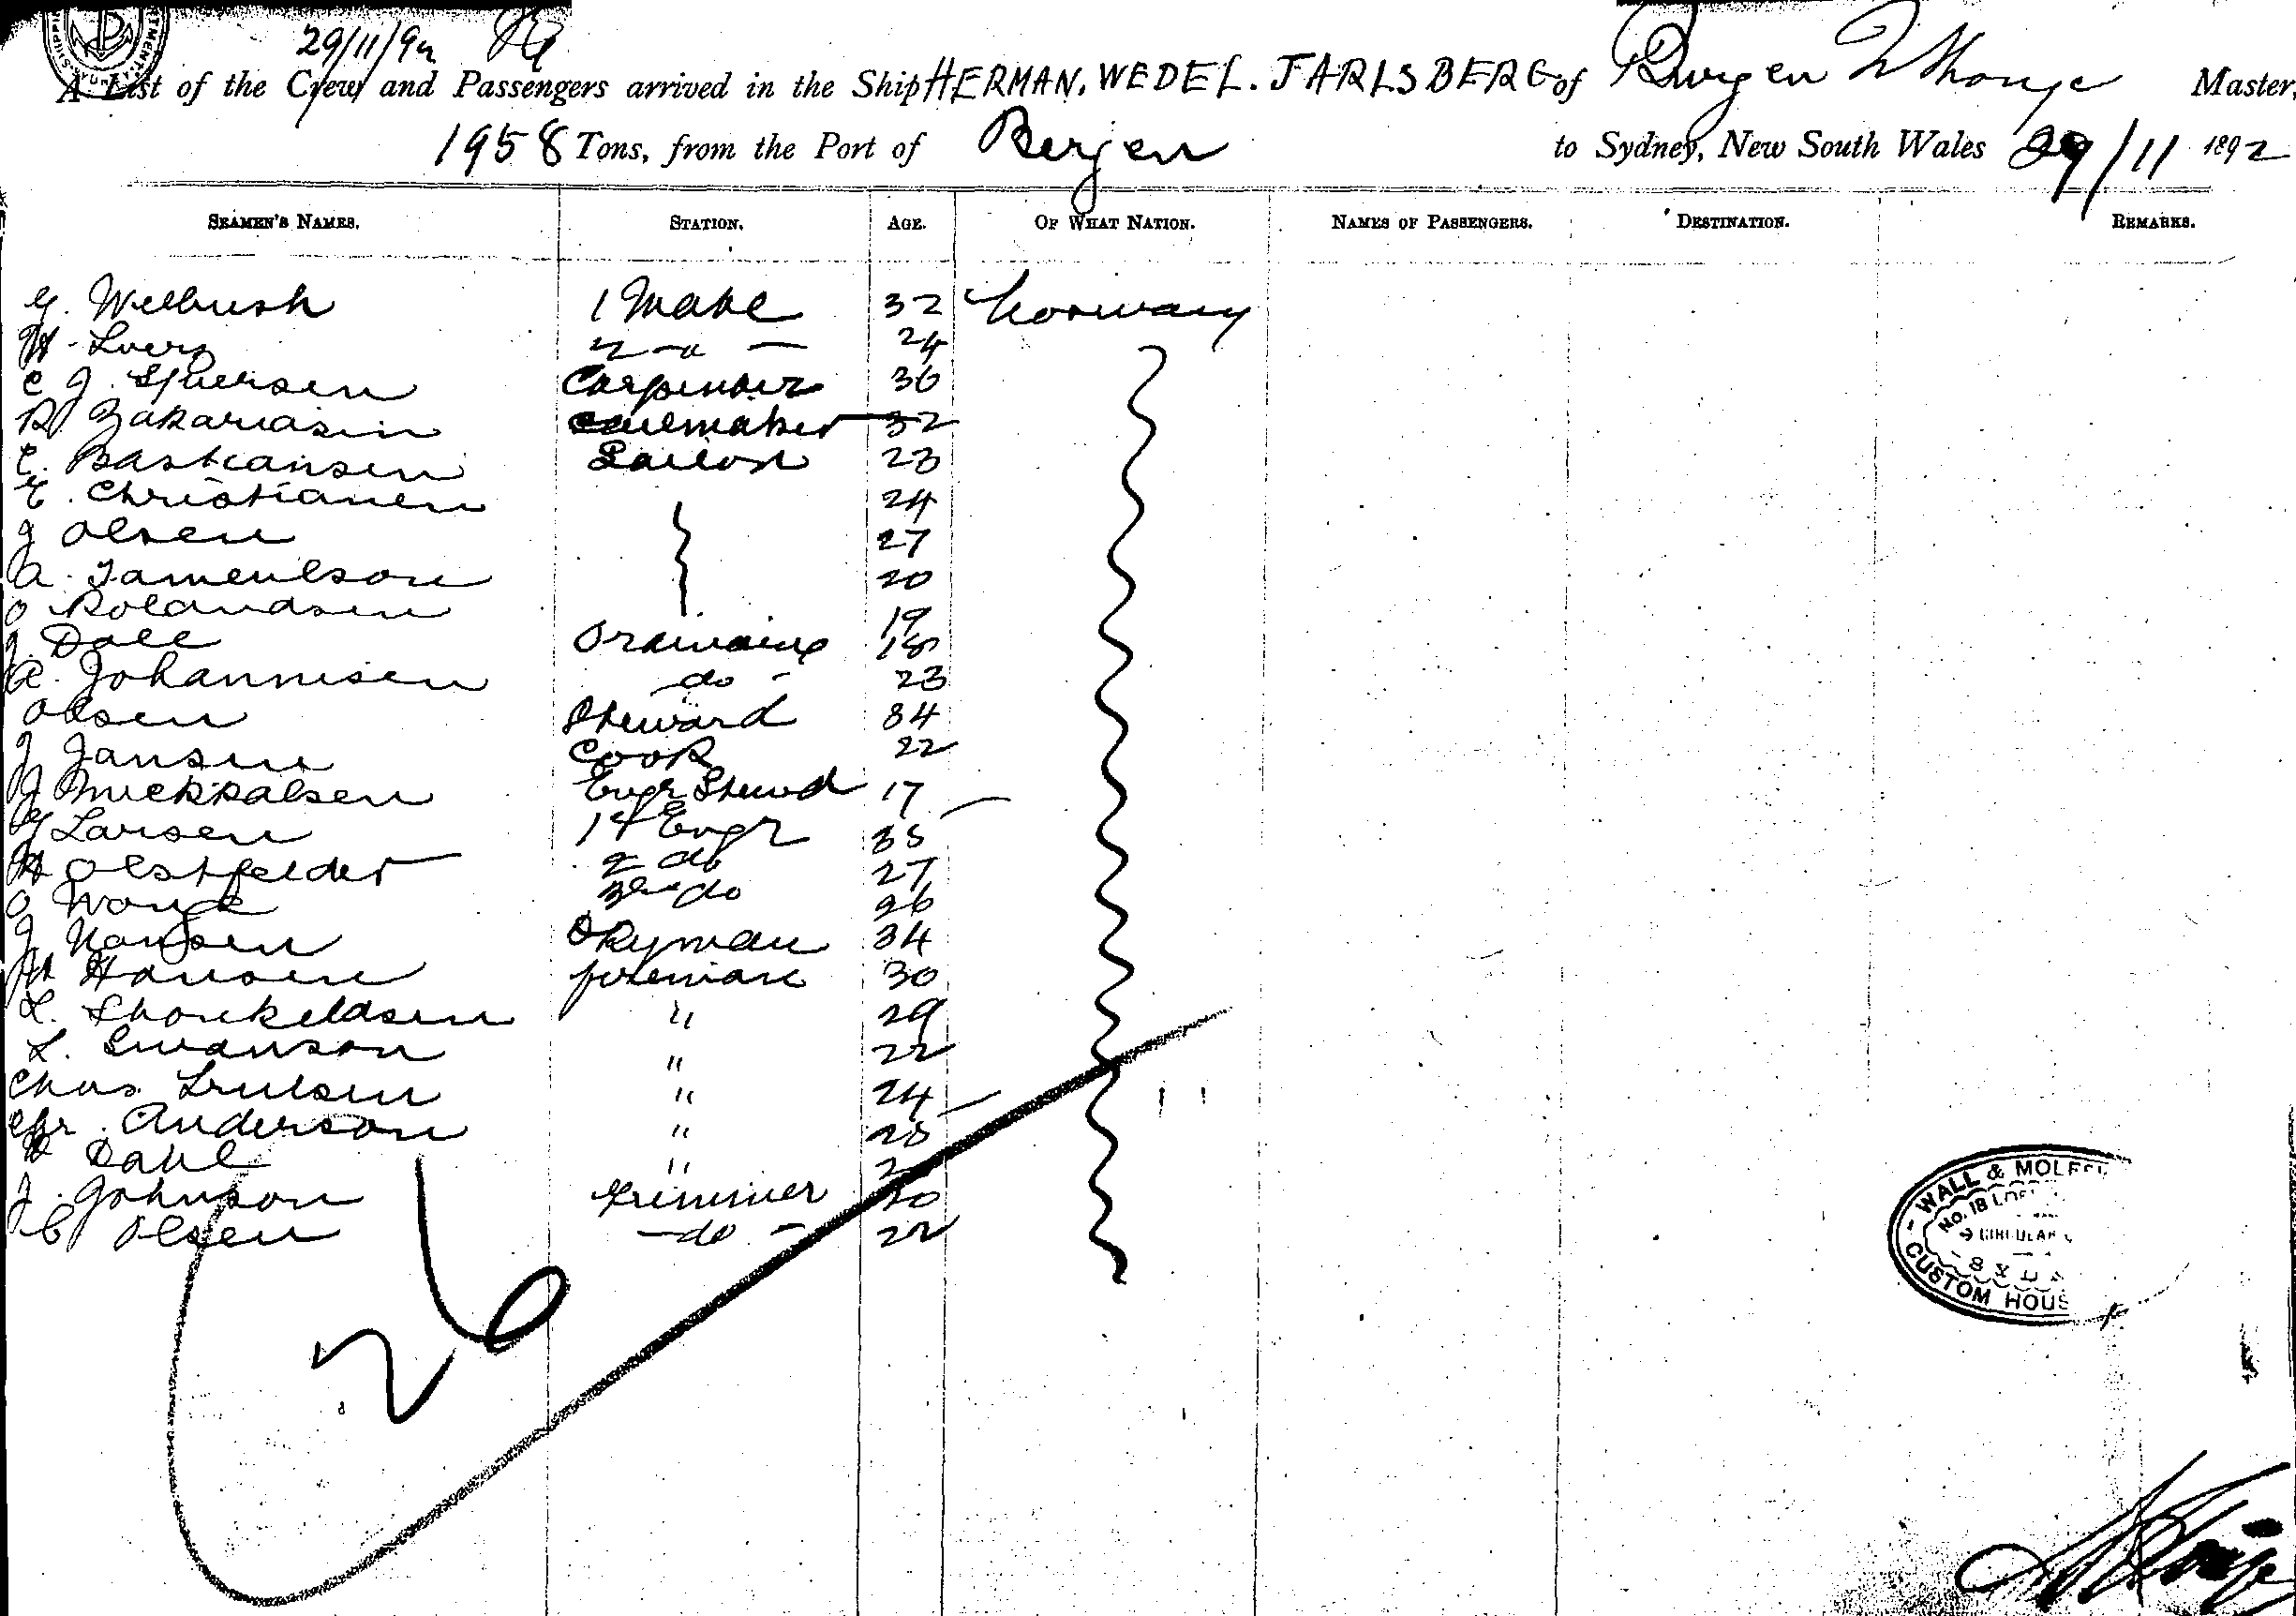 29/11/92
A List of the Crew and Passengers arrived in the Ship HERMAN. WEDEL. JARLSBERG of Bergen Master,
1958 Tons, from the Port of Bergen to Sydney, New South Wales 29/11 1892
SEAMEN'S NAMES. STATION. AGE. OF WHAT NATION. NAMES OF PASSENGERS. DESTINATION. REMARKS.
1 Mate 32 Norway
24
C J Carpenter 36
R Zakariasin 32
C. Bastiansen Sailor 23
E. Christianen 24
J Olsen 27
A. 20
O Rolandsen 19
J. Dall 18
A. Johannisen do - 23
Olsen Steward 34
J Jansen Cook 22
J Mickkalsen Engr Stewd 17
Larsen 1st Engr 35
H Olstfelder 2 do 27
O do 26
J Nansen Dkyman 34
H Hansen fireman 30
L. " 29
L. Swanson " 22
Chas " 24
Chr. Anderson " 28
Dahl "
J. Johnson Trimmer
C Olsen - do - 22
26
WALL &
No. 18
CIRCULAR
CUSTOM HOUS